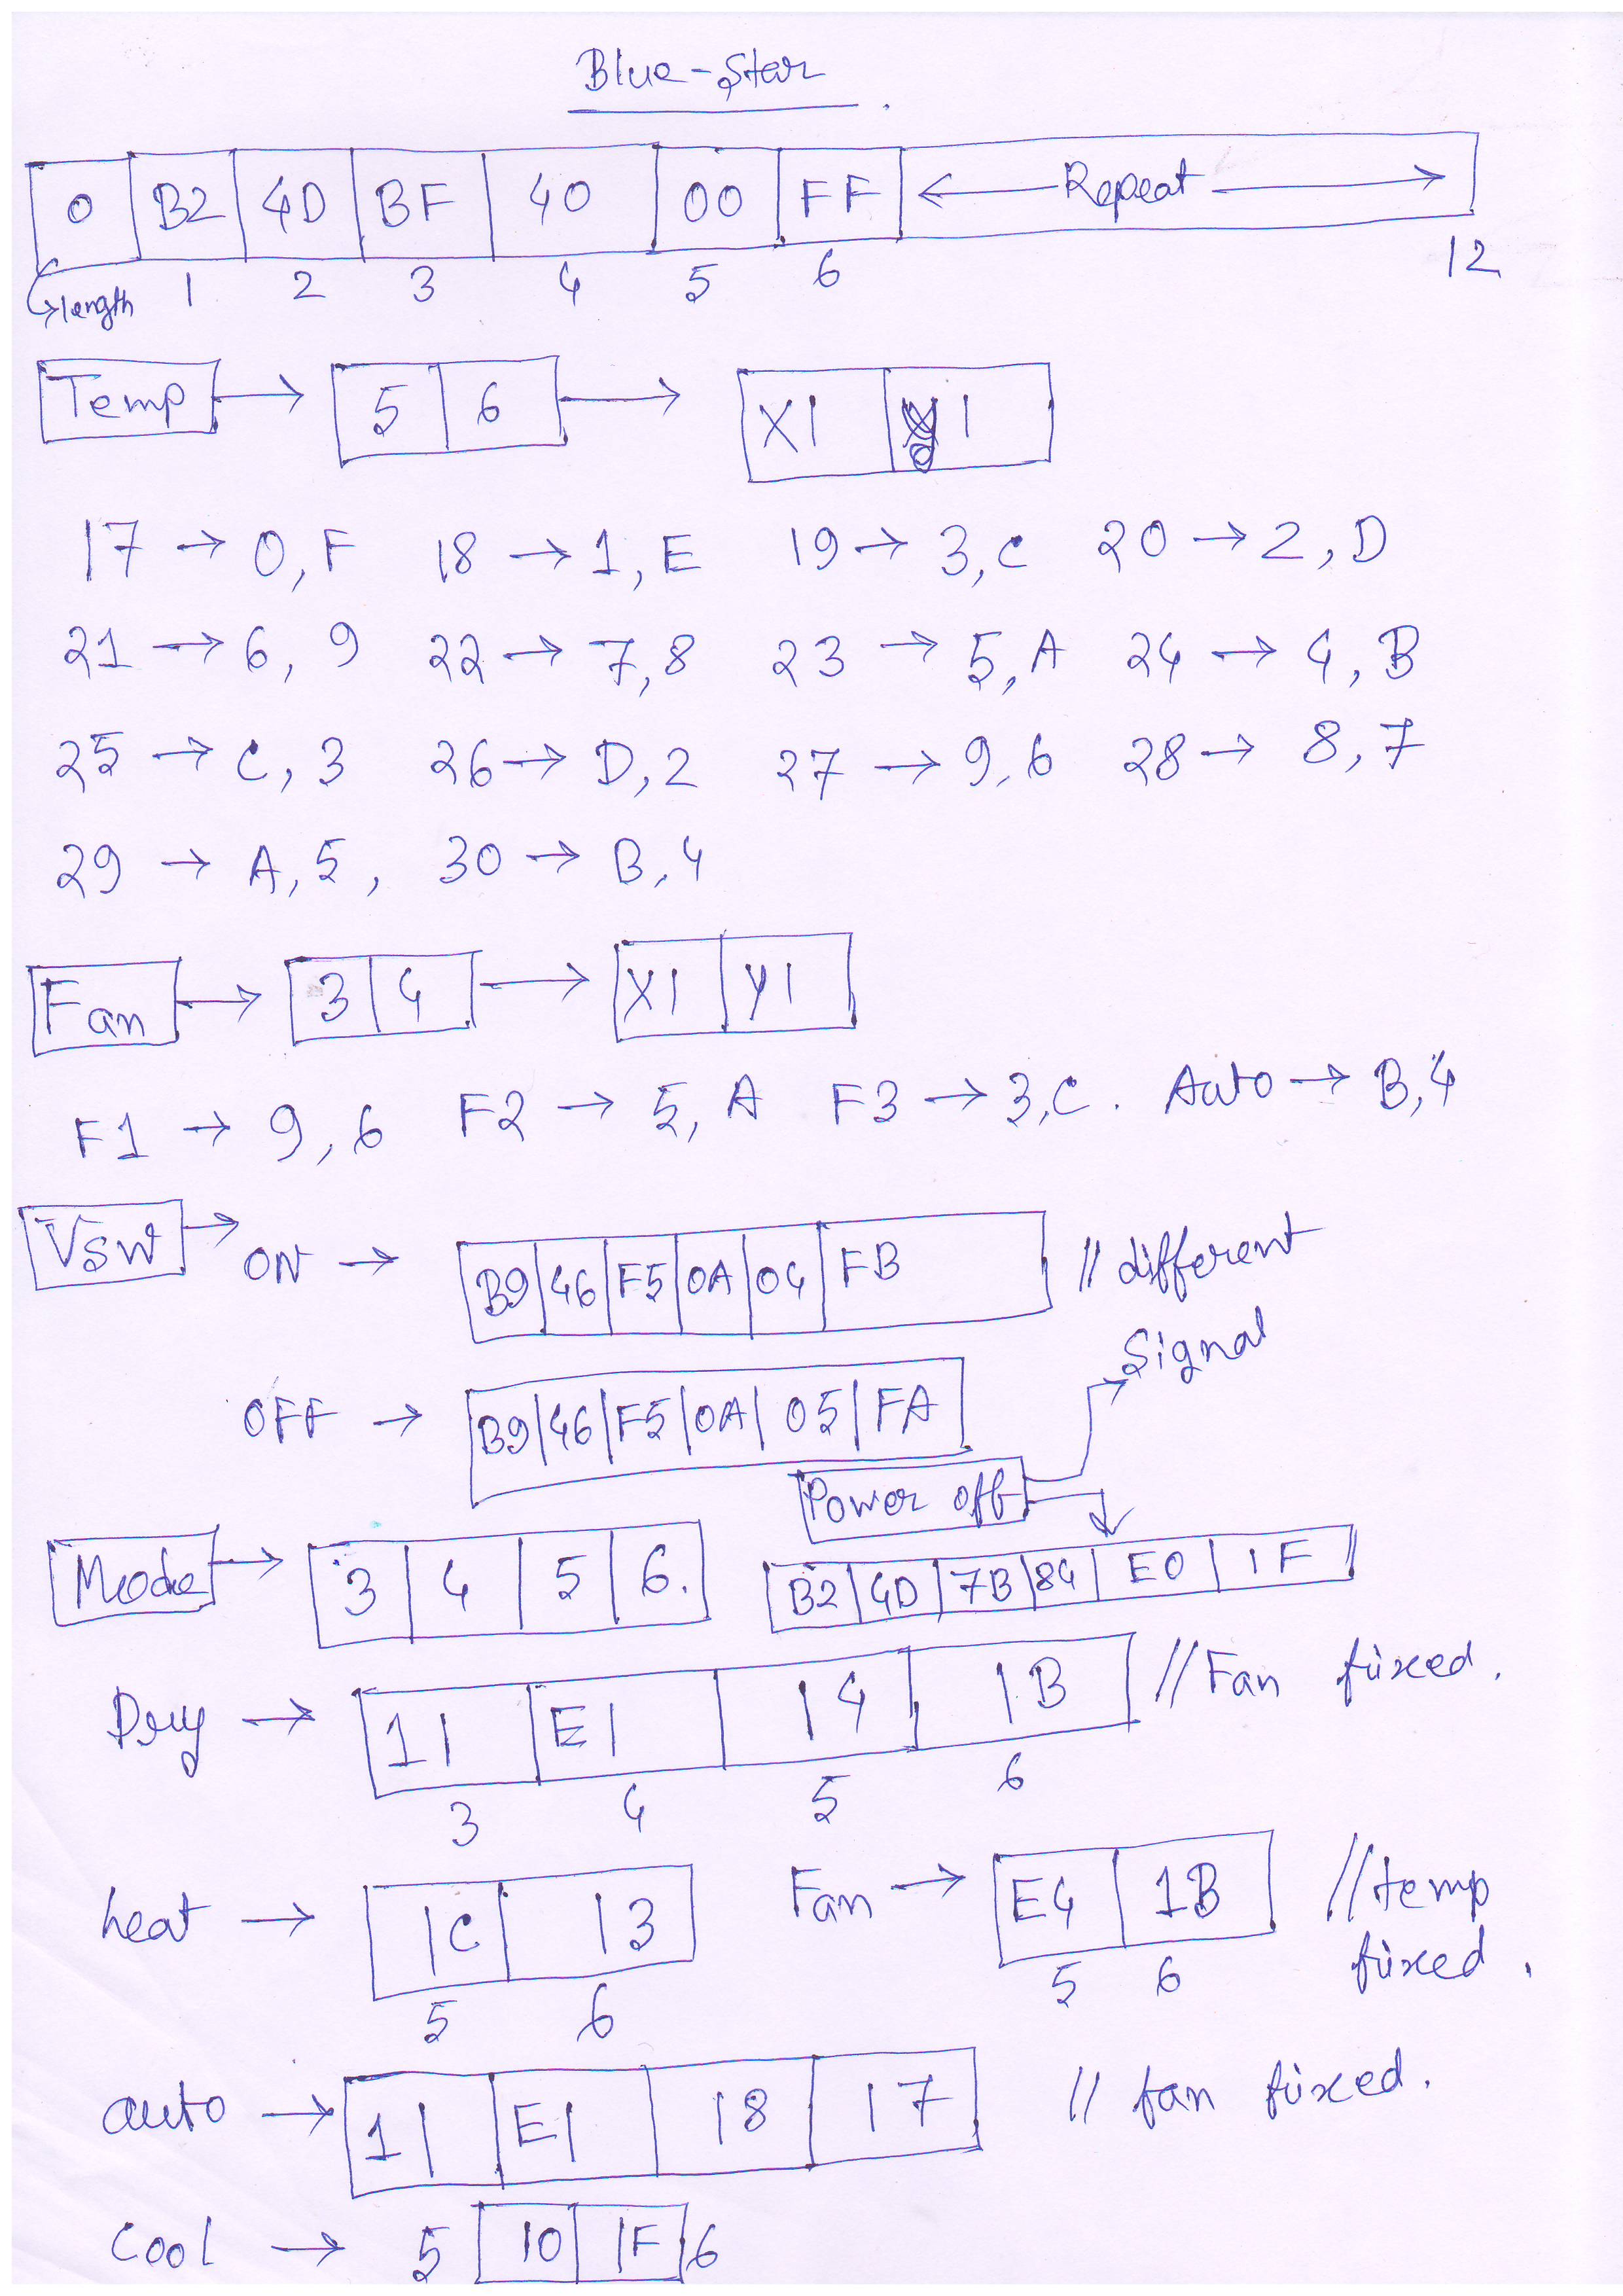 Blue-Star
0 | B2 | 4D | BF | 40 | 00 | FF | ← Repeat →
length 1 2 3 4 5 6 12
Temp → 5 | 6 → X| | y|
17 → 0, F 18 → 1, E 19 → 3, C 20 → 2, D
21 → 6, 9 22 → 7, 8 23 → 5, A 24 → 4, B
25 → C, 3 26 → D, 2 27 → 9, 6 28 → 8, 7
29 → A, 5, 30 → B, 4
Fan → 3 | 4 → X| | y|
F1 → 9, 6 F2 → 5, A F3 → 3, C. Auto → B, 4
VSW → ON → B9 | 46 | F5 | 0A | 04 | FB // different
Signal
OFF → B9 | 46 | F5 | 0A | 05 | FA
Power off
Mode → 3 | 4 | 5 | 6. B2 | 4D | 7B | 84 | E0 | 1F
Dry → 1| | E| | |4 | |B // Fan fixed.
3 4 5 6
heat → |C | |3 Fan → E4 | 1B // temp
fixed.
5 6 5 6
auto → 1| | E| | |8 | |7 // fan fixed.
Cool → 5 |0 | |F 6